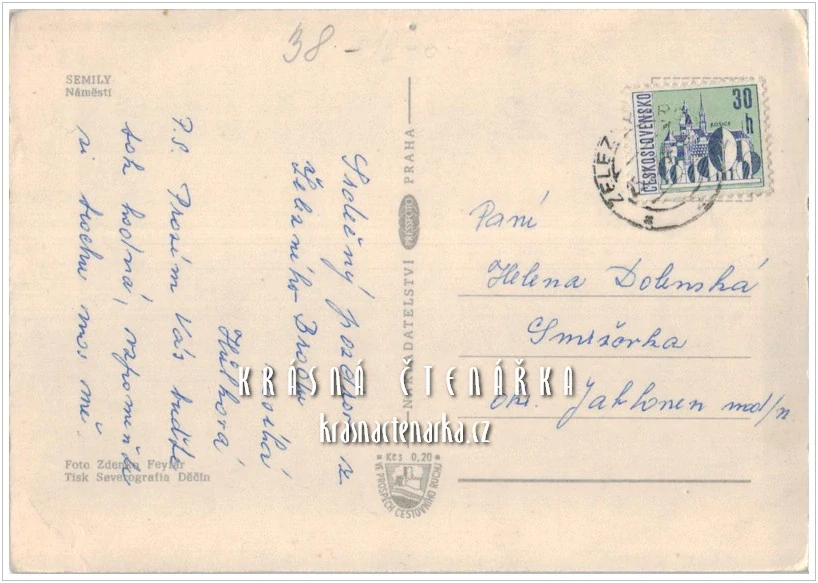 38
SEMILY
Náměstí
Srdečný pozdrav z
Železného Brodu
Hůlková
P.S. Prosím Vás buďte
tak hodná, vzpomeňte
si trochu na mě.
NAKLADATELSTVÍ PRESSFOTO PRAHA
ČESKOSLOVENSKO
30
h
KOŠICE
ŽELEZ
Paní
Helena Dolenská
Smržovka
okr. Jablonec nad/n
KRÁSNÁ ČTENÁŘKA
krasnactenarka.cz
Foto Zdenko Feyfar
Tisk Severografia Děčín
Kčs 0,20
VE PROSPĚCH CESTOVNÍHO RUCHU